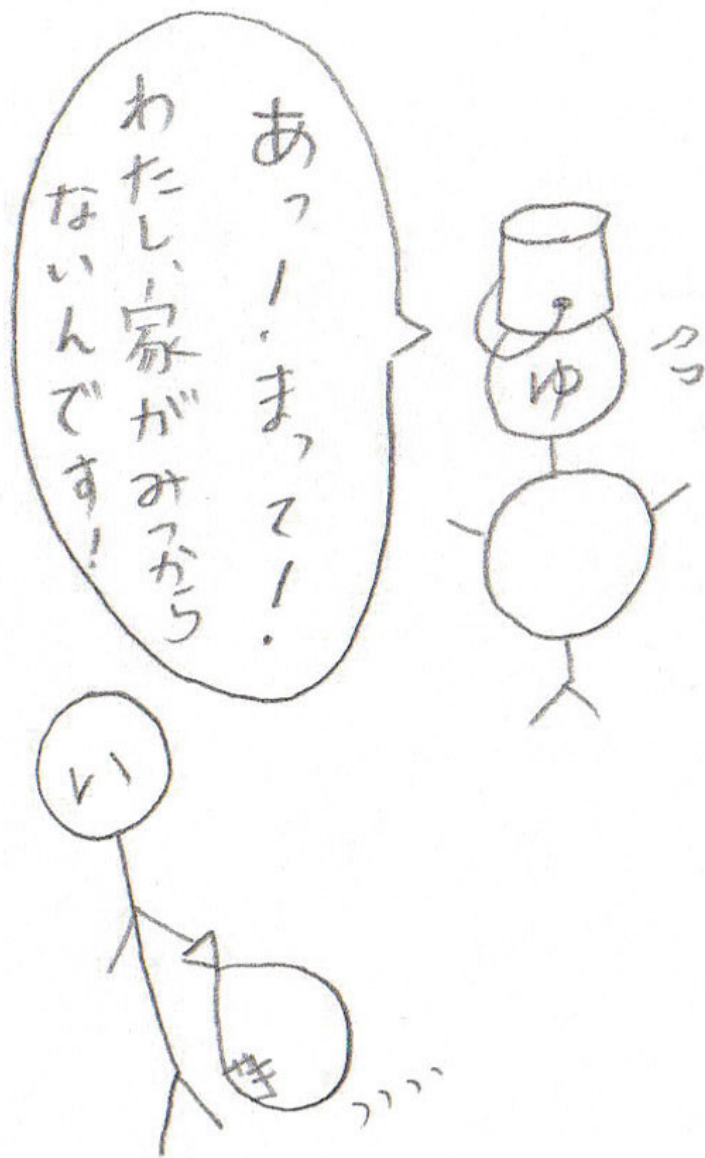 あっ!まって!
わたし、家がみつから
ないんです!
ゆ
い
やき